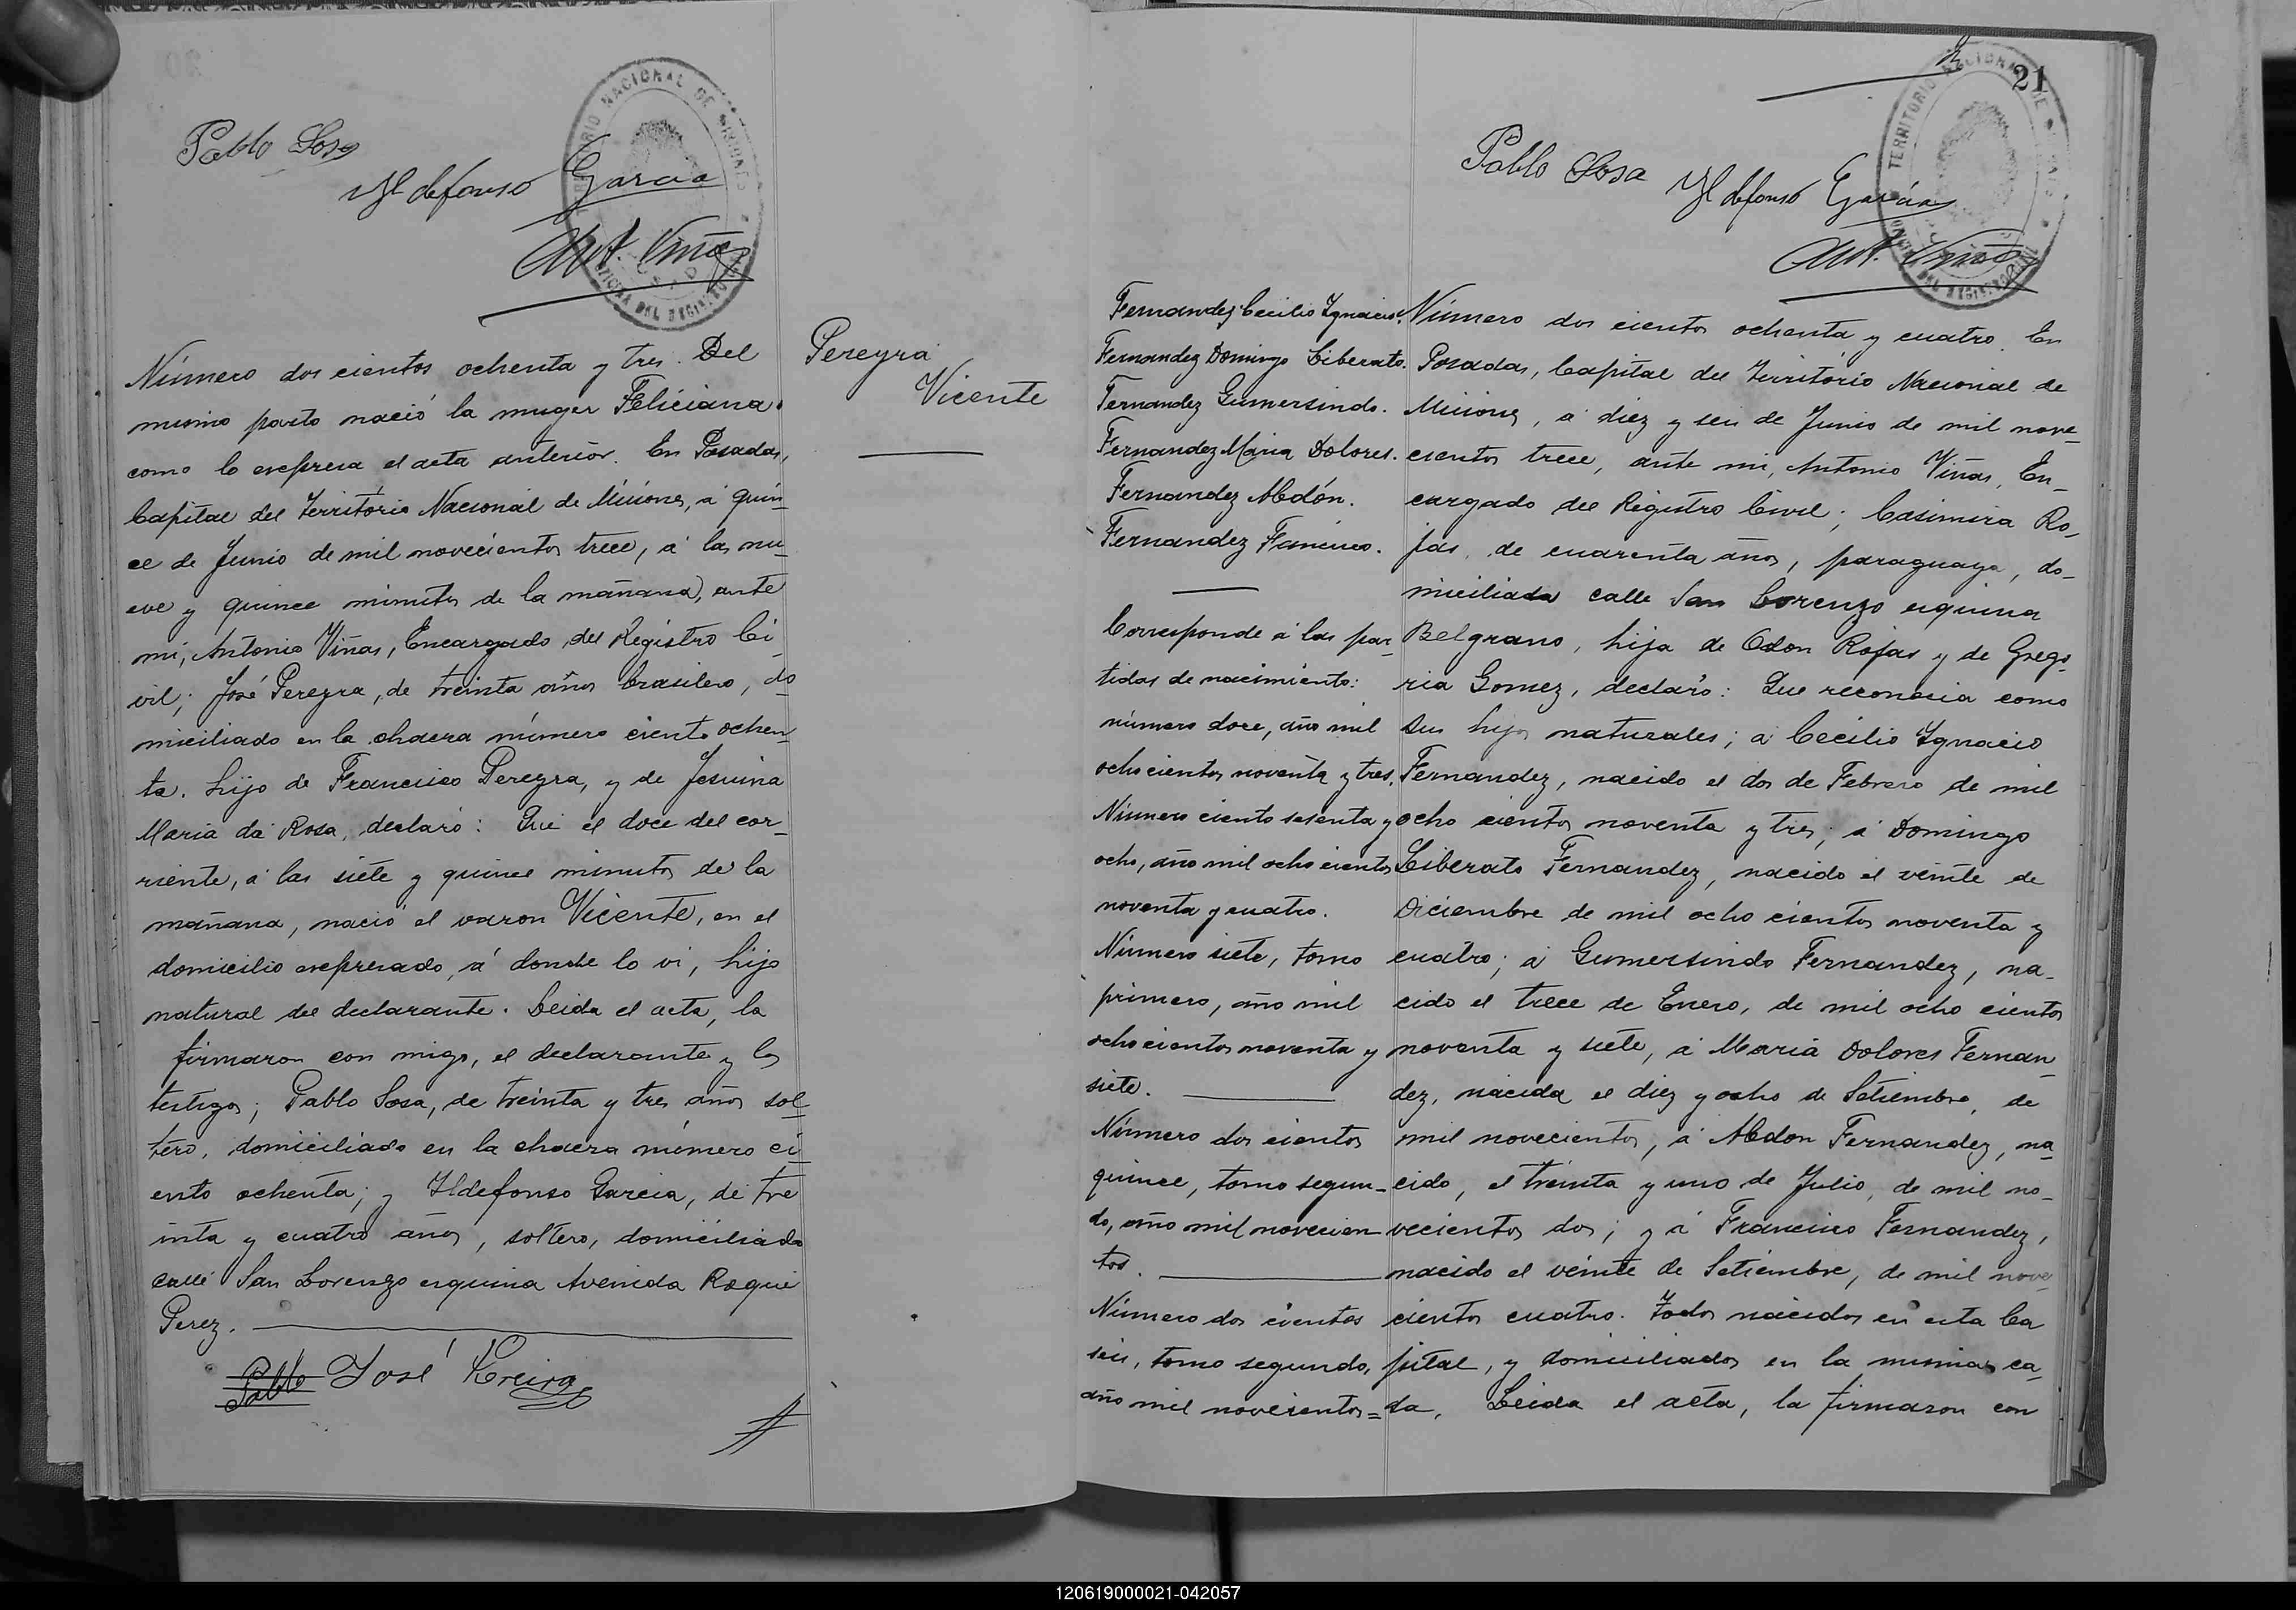 Pablo Sosa
Yldefonso Garcia
Ant. Viñas
TERRITORIO NACIONAL DE MISIONES
OFICINA DEL REGISTRO CIVIL
Número dos cientos ochenta y tres. Del
mismo parto nació la muger Feliciana
como lo expresa el acta anterior. En Posadas,
Capital del Territorio Nacional de Misiones, á quin_
ce de Junio de mil novecientos trece, á las nu_
eve y quince minutos de la mañana, ante
mi, Antonio Viñas, Encargado del Registro Ci_
vil; José Pereyra, de treinta años brasilero, do
miciliado en la chacra número ciento ochen_
ta. hijo de Francisco Pereyra, y de Jesuina
Maria da Rosa, declaró: Que el doce del cor_
riente, á las siete y quince minutos de la
mañana, nació el varon Vicente, en el
domicilio expresado, á donde lo vi, hijo
natural del declarante. Leida el acta, la
firmaron con migo, el declarante y los
testigos; Pablo Sosa, de treinta y tres años sol_
tero, domiciliado en la chacra número ci_
ento ochenta; y Ildefonso Garcia, de tre
inta y cuatro años, soltero, domiciliado
calle San Lorenzo esquina Avenida Roque
Perez.
Pablo José Pereira
Pereyra
Vicente
21
TERRITORIO NACIONAL DE MISIONES
OFICINA DEL REGISTRO CIVIL
Pablo Sosa Yldefonso Garcia
Ant. Viñas
Fernandez Cecilio Ygnacio.
Fernandez Domingo Liberato.
Fernandez Gumersindo.
Fernandez Maria Dolores.
Fernandez Abdón.
Fernandez Francisco.
Corresponde á las par_
tidas de nacimiento:
número doce, año mil
ochocientos noventa y tres.
Número ciento sesenta y
ocho, año mil ocho cientos
noventa y cuatro.
Número siete, tomo
primero, año mil
ochocientos noventa y
siete.
Número dos cientos
quince, tomo segun_
do, año mil novecien
tos.
Número dos cientos
seis, tomo segundo,
año mil novecientos=
Número dos cientos ochenta y cuatro. En
Posadas, Capital del Territorio Nacional de
Misiones, á diez y seis de Junio de mil nove_
cientos trece, ante mi, Antonio Viñas, En_
cargado del Registro Civil; Casimira Ro_
jas, de cuarenta años, paraguaya, do_
miciliada calle San Lorenzo esquina
Belgrano, hija de Odon Rojas y de Grego_
ria Gomez, declaró: Que reconocia como
sus hijos naturales; á Cecilio Ygnacio
Fernandez, nacido el dos de Febrero de mil
ocho cientos noventa y tres; á Domingo
Liberato Fernandez, nacido el veinte de
Diciembre de mil ocho cientos noventa y
cuatro; á Gumersindo Fernandez, na_
cido el trece de Enero, de mil ocho cientos
noventa y siete, á Maria Dolores Fernan_
dez, nacida el diez y ocho de Setiembre, de
mil novecientos, á Abdon Fernandez, na_
cido, el treinta y uno de Julio, de mil no_
vecientos dos; y á Francisco Fernandez,
nacido el veinte de Setiembre, de mil nove
cientos cuatro. Todos nacidos en esta Ca
pital, y domiciliados en la misma ca_
sa. Leida el acta, la firmaron con
120619000021-042057